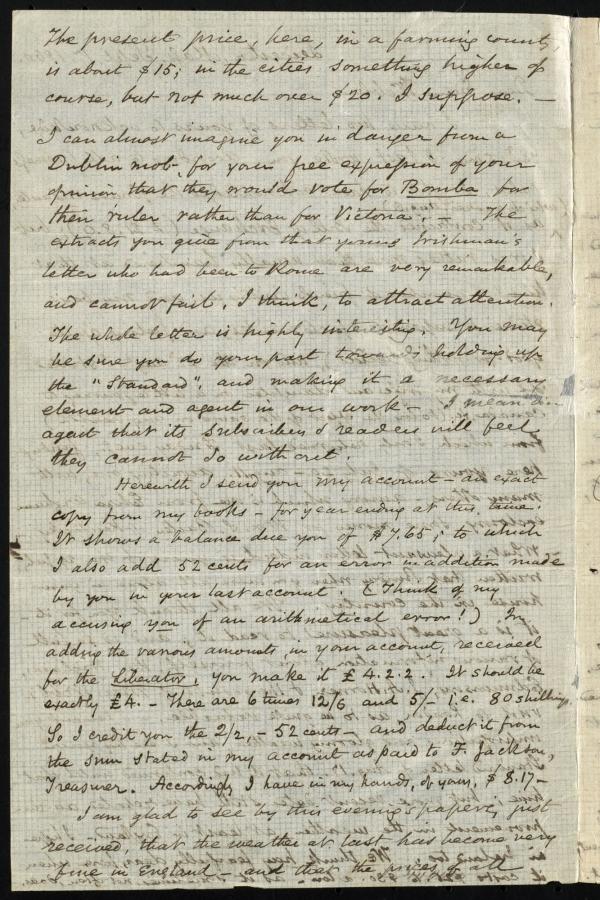 The present price, here, in a farming county,
is about $15; in the cities something higher of
course, but not much over $20. I suppose. —
I can almost imagine you in danger from a
Dublin mob, for your free expression of your
opinion that they would vote for Bomba for
their ruler rather than for Victoria. — The
extracts you give from that young Irishman's
letter who had been to Rome are very remarkable,
and cannot fail, I think, to attract attention.
The whole letter is highly interesting. You may
be sure you do your part towards holding up
the "Standard", and making it a necessary
element and agent in our work — I mean an
agent that its subscribers & readers will feel
they cannot do without.
Herewith I send you my account — an exact
copy from my books — for year ending at this time.
It shows a balance due you of $7.65; to which
I also add 52 cents for an error in addition made
by you in your last account. (Think of my
accusing you of an arithmetical error!) In
adding the various amounts in your account, received
for the Liberator, you make it £4.2.2. It should be
exactly £4. — There are 6 times 12/6 and 5/— i.e. 80 shillings.
So I credit you the 2/2, — 52 cents — and deduct it from
the sum stated in my account as paid to F. Jackson,
Treasurer. Accordingly I have in my hands, of yours, $8.17 —
I am glad to see by this evening's papers, just
received, that the weather at last has become very
fine in England — and that the prices of all